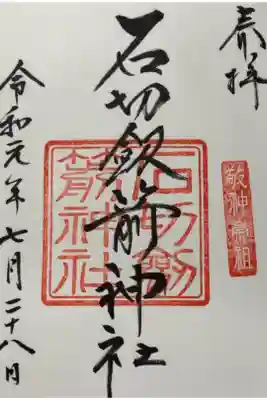 奉拝
敬神崇祖
石切劔箭神社
石切劔箭神社
令和元年七月二十八日